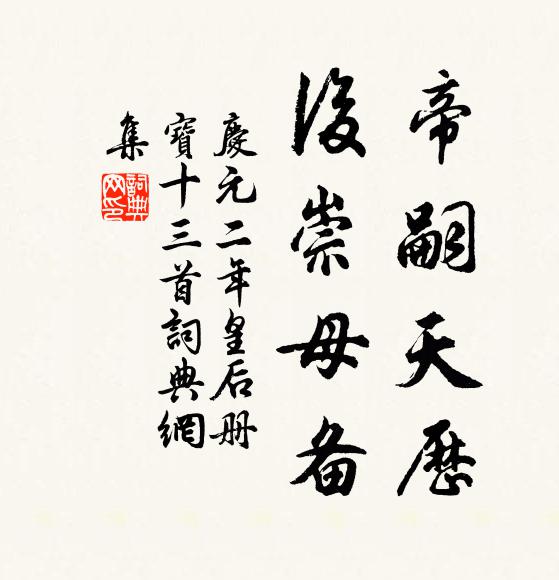 帝嗣天歷
後崇母备
慶元二年皇后册
寶十三首詞典網
集
詞典
网印